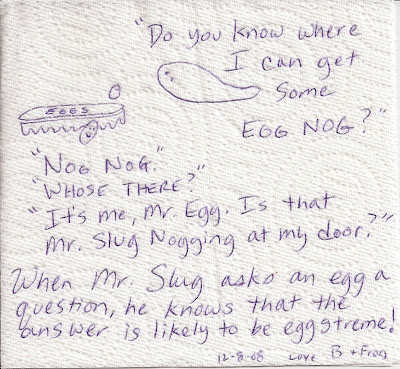 "Do you know where
I can get
some
EGG NOG?"
EGGS
"NOG NOG."
"WHOSE THERE?"
"It's me, Mr. Egg. Is that
Mr. Slug Nogging at my door?"
When Mr. Slug asks an egg a
question, he knows that the
answer is likely to be eggstreme!
12-8-08 love B + Frog